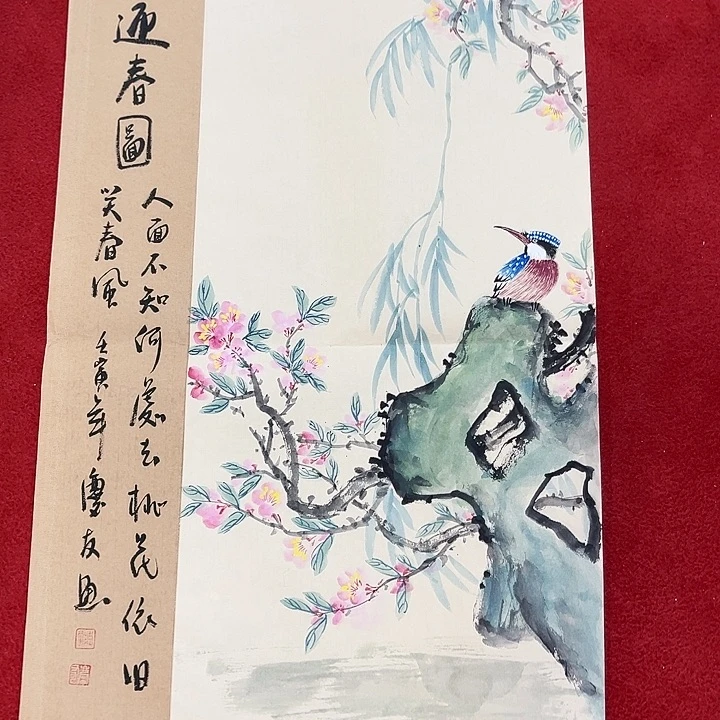 迎春圖
人面不知何處去桃花依旧
笑春風 壬寅年 友画